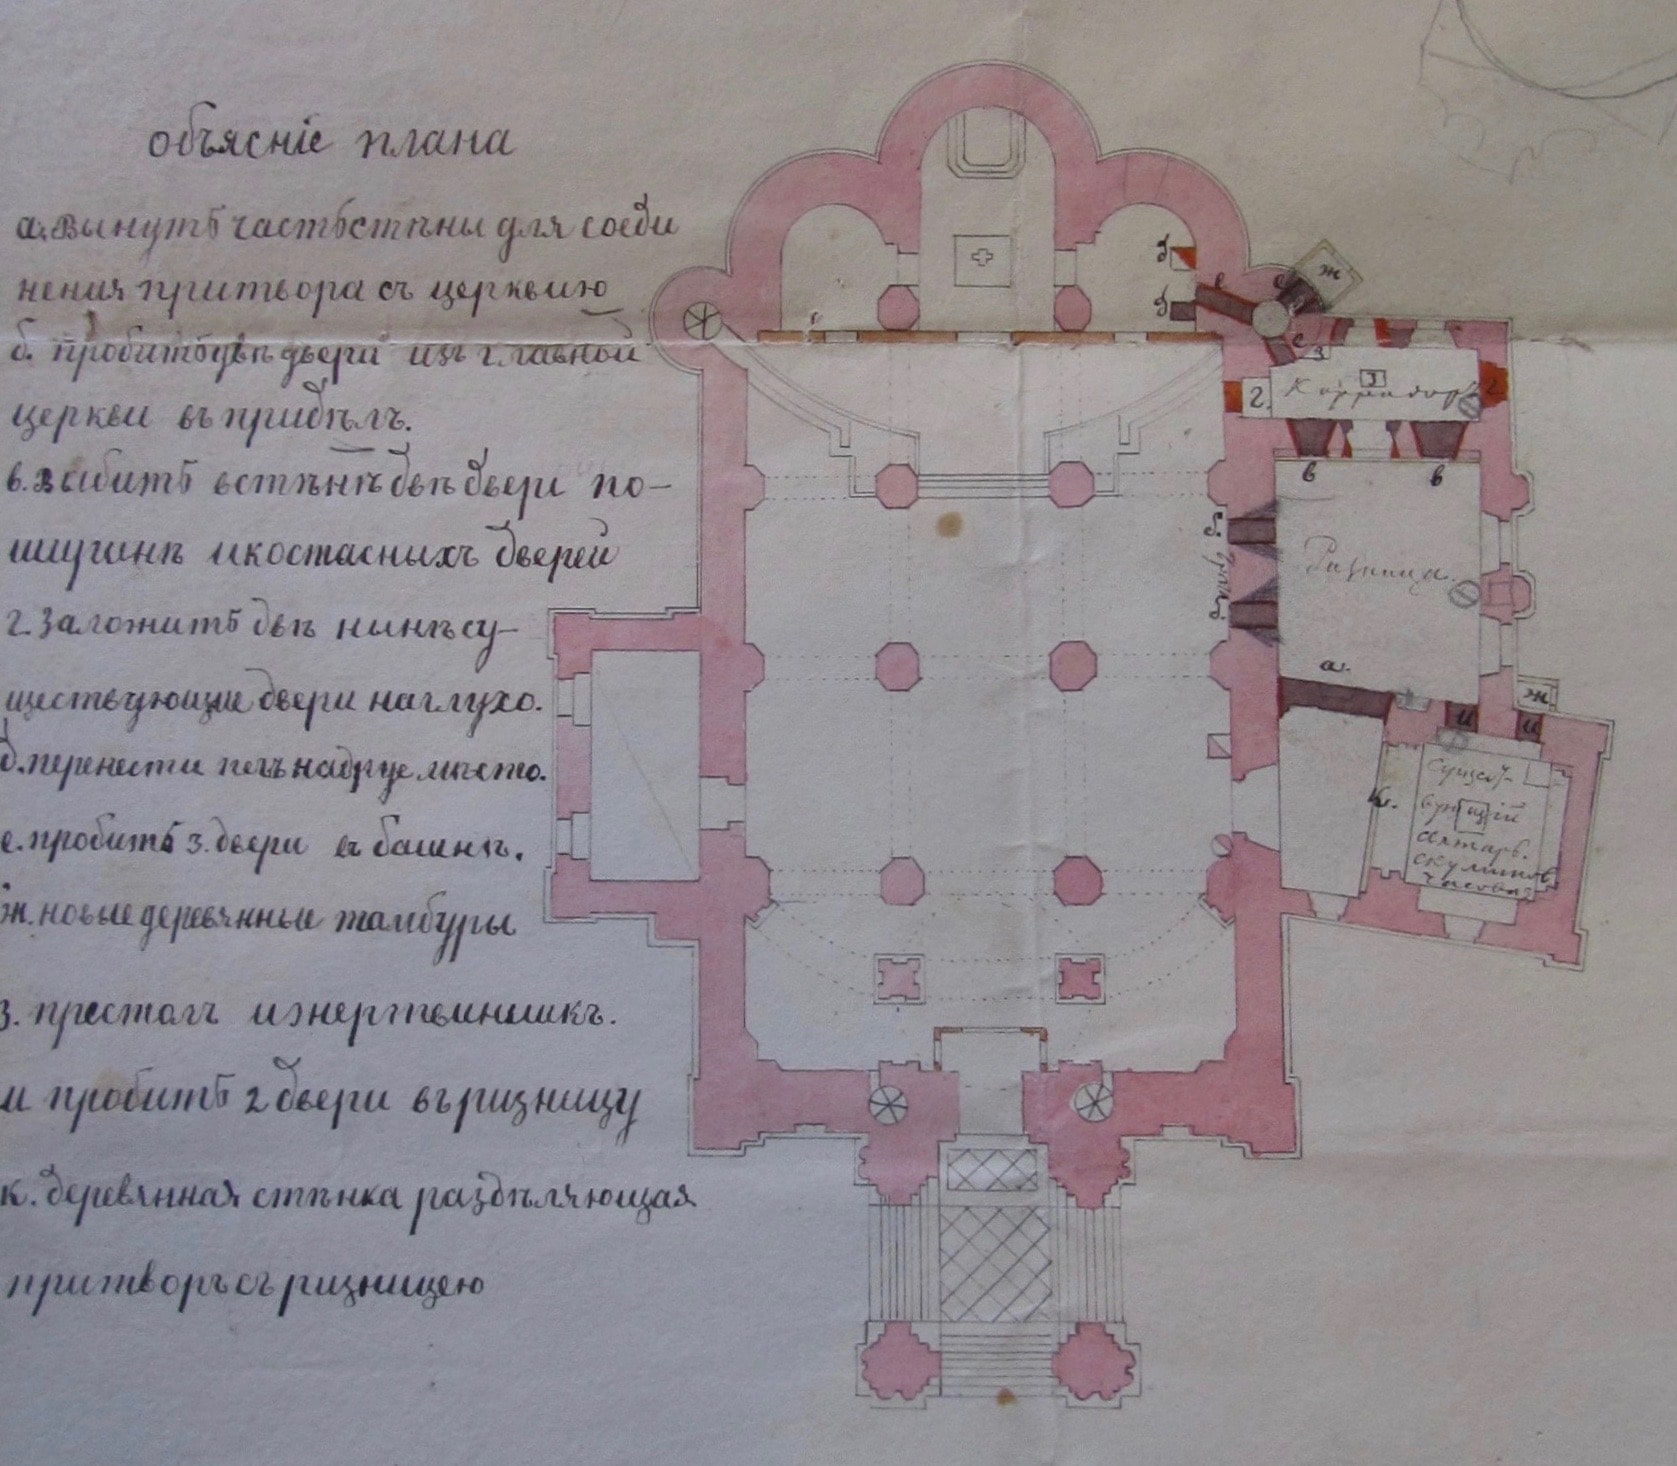 объясніе плана
а. Вынуть часть стѣны для соеди
нения притвора съ церквию
б. пробить двѣ двери изъ главной
церкви въ придѣлъ.
в. забить в стѣнѣ двѣ двери по-
иконостасныхъ дверей
г. Заложить двѣ нынѣ су-
ществующие двери наглухо.
д. перенести печь на другое мѣсто.
е. пробить 3. двери в башнѣ.
ж. новые деревянные тамбуры
з. престолъ и жертвенникъ.
и пробить 2 двери въ ризницу
к. деревянная стѣнка раздѣляющая
притворъ съ ризницею
д
д
е
е
ж
с
з
г.
Корридоръ
з
г
в
в
б.
б.
Ризница.
а.
ж
и
и
к.
Сущест-
вующій
алтарь.